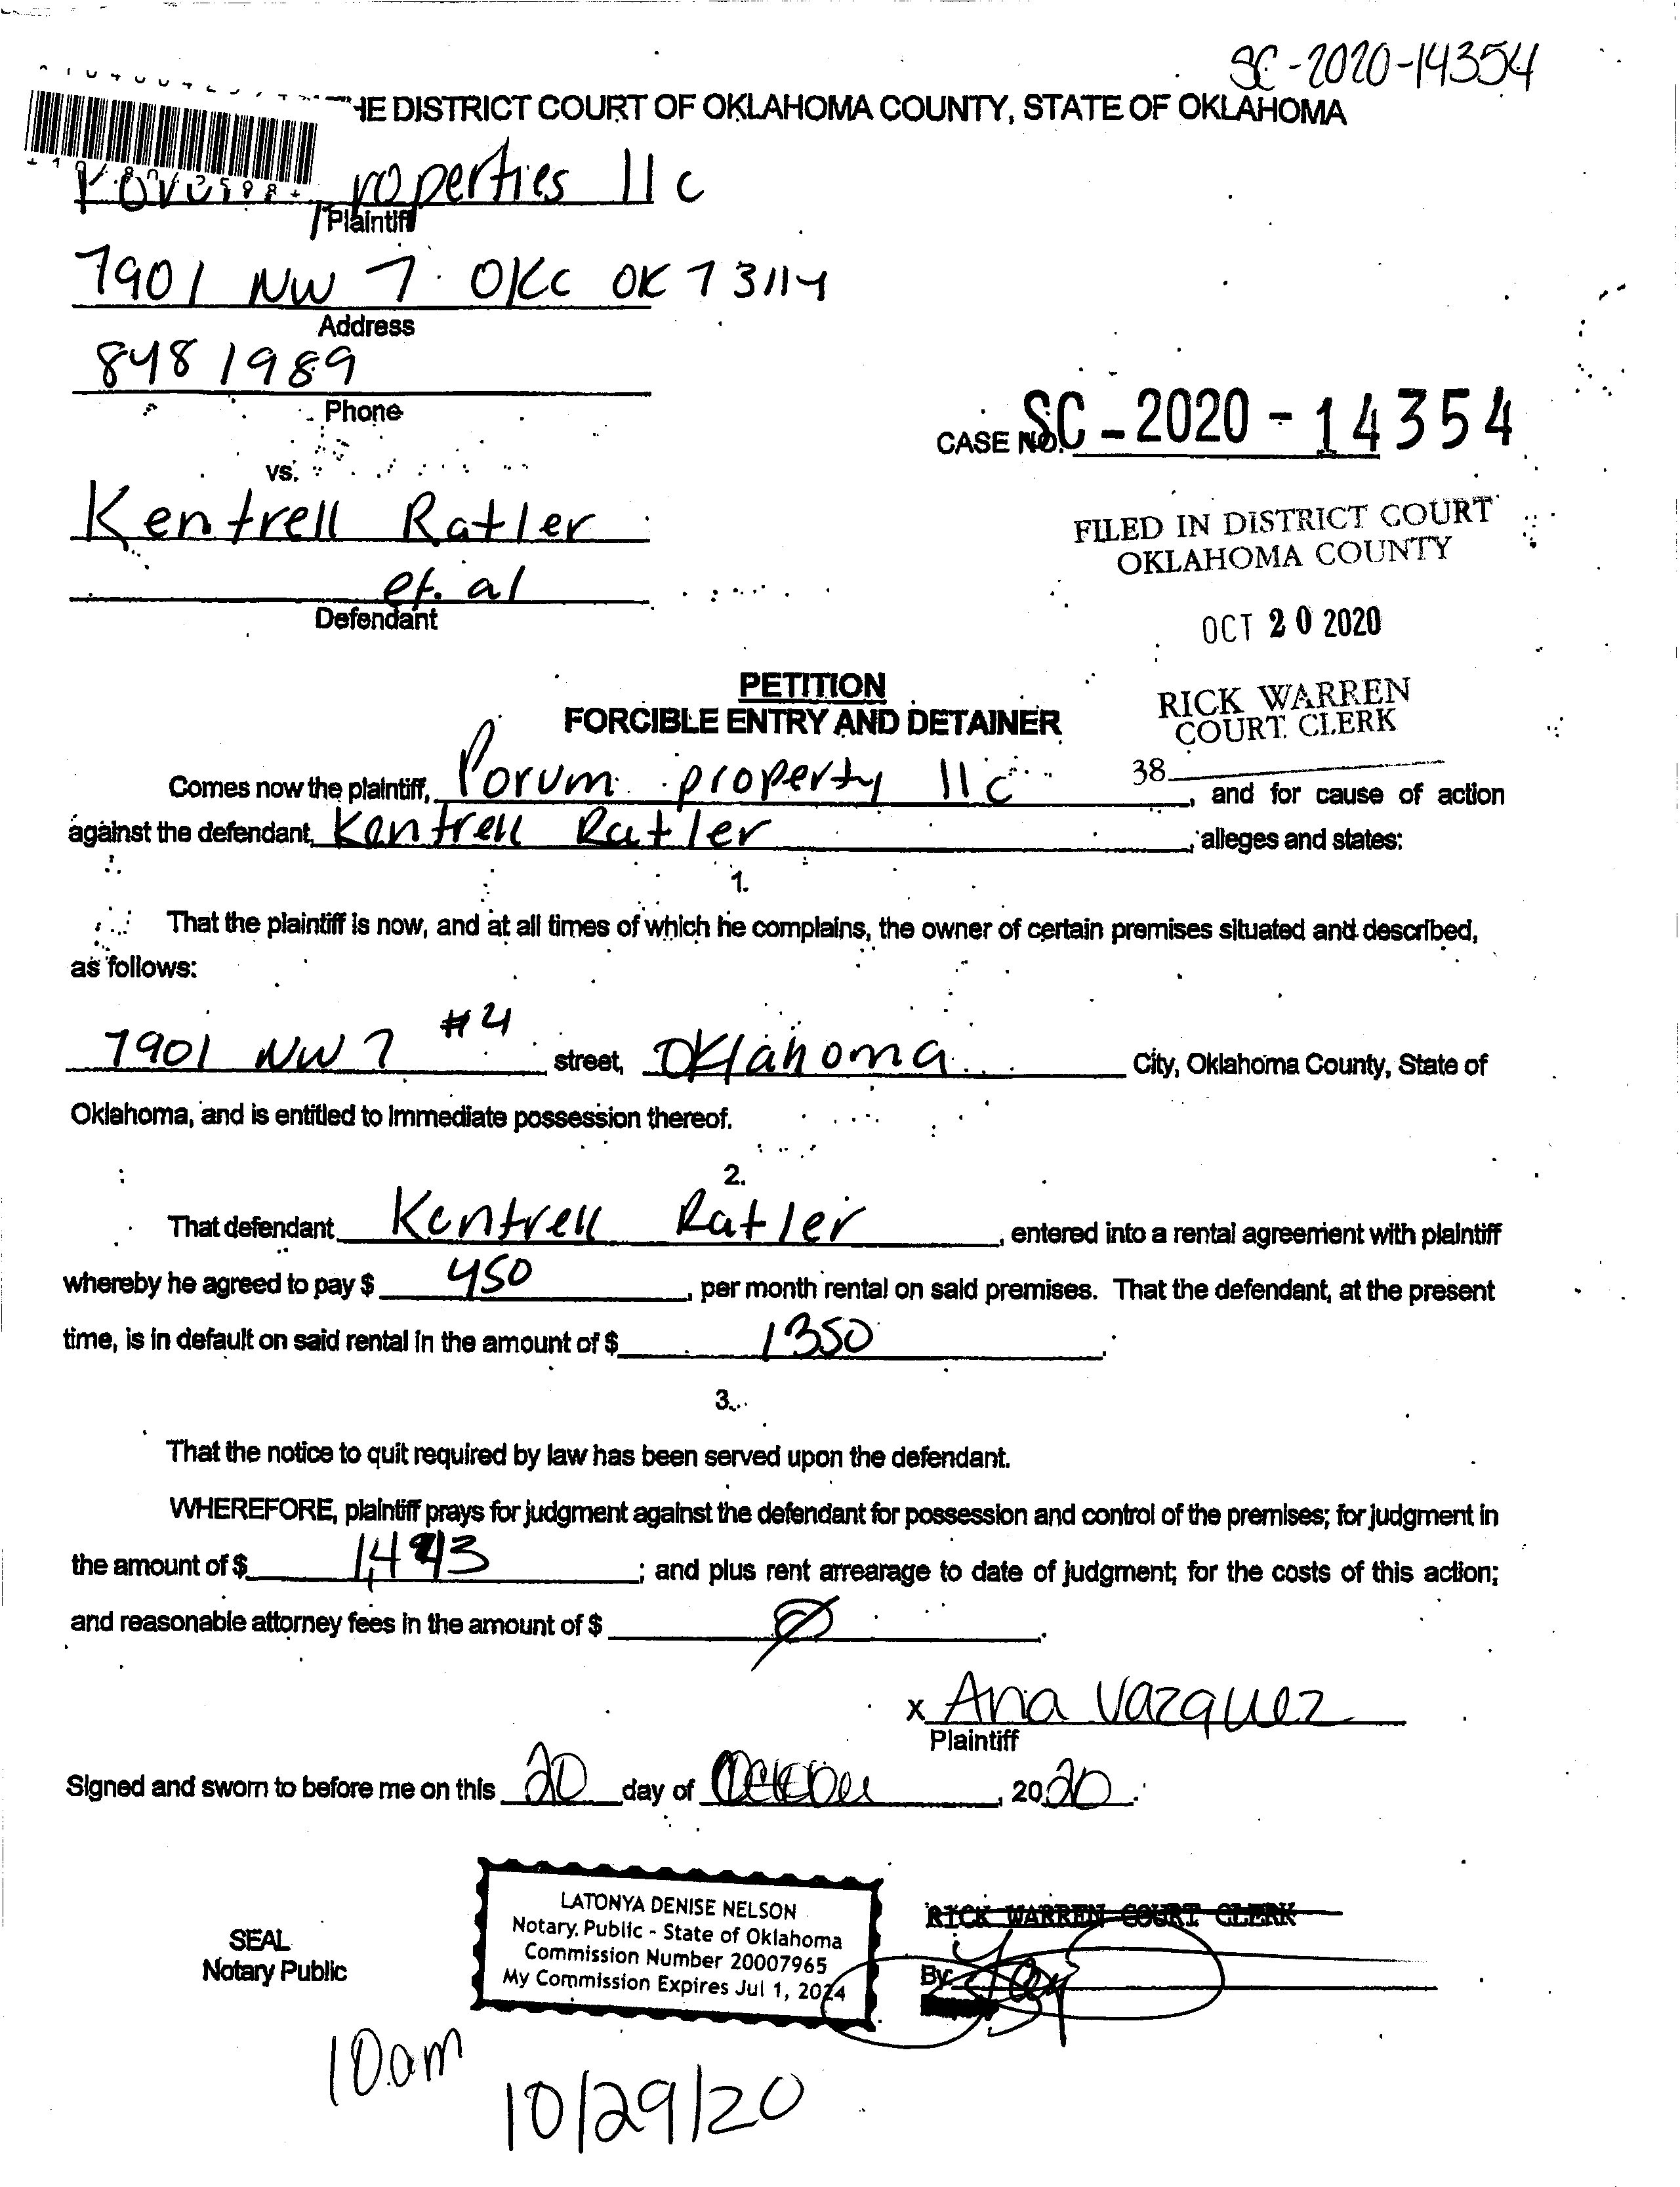 SC-2020-14354
HE DISTRICT COURT OF OKLAHOMA COUNTY, STATE OF OKLAHOMA
roperties llc
Plaintiff
7901 NW 7 OKC OK 73114
Address
848 1989
Phone
CASE NO. SC-2020-14354
vs.
Kentrell Ratler
et. al
Defendant
FILED IN DISTRICT COURT
OKLAHOMA COUNTY
OCT 20 2020
RICK WARREN
COURT CLERK
38
PETITION
FORCIBLE ENTRY AND DETAINER
Comes now the plaintiff, Porum property llc, and for cause of action
against the defendant, Kentrell Ratler, alleges and states:
1.
That the plaintiff is now, and at all times of which he complains, the owner of certain premises situated and described,
as follows:
7901 NW 7 #4 street, Oklahoma City, Oklahoma County, State of
Oklahoma, and is entitled to immediate possession thereof.
2.
That defendant Kentrell Ratler, entered into a rental agreement with plaintiff
whereby he agreed to pay $ 450, per month rental on said premises. That the defendant, at the present
time, is in default on said rental in the amount of $ 1350.
3.
That the notice to quit required by law has been served upon the defendant.
WHEREFORE, plaintiff prays for judgment against the defendant for possession and control of the premises; for judgment in
the amount of $ ; and plus rent arrearage to date of judgment; for the costs of this action;
and reasonable attorney fees in the amount of $ Ø.
x Ana Vazquez
Plaintiff
Signed and sworn to before me on this 20 day of October, 2020.
LATONYA DENISE NELSON
Notary Public - State of Oklahoma
Commission Number 20007965
My Commission Expires Jul 1, 2024
SEAL
Notary Public
RICK WARREN COURT CLERK
By
10am
10/29/20